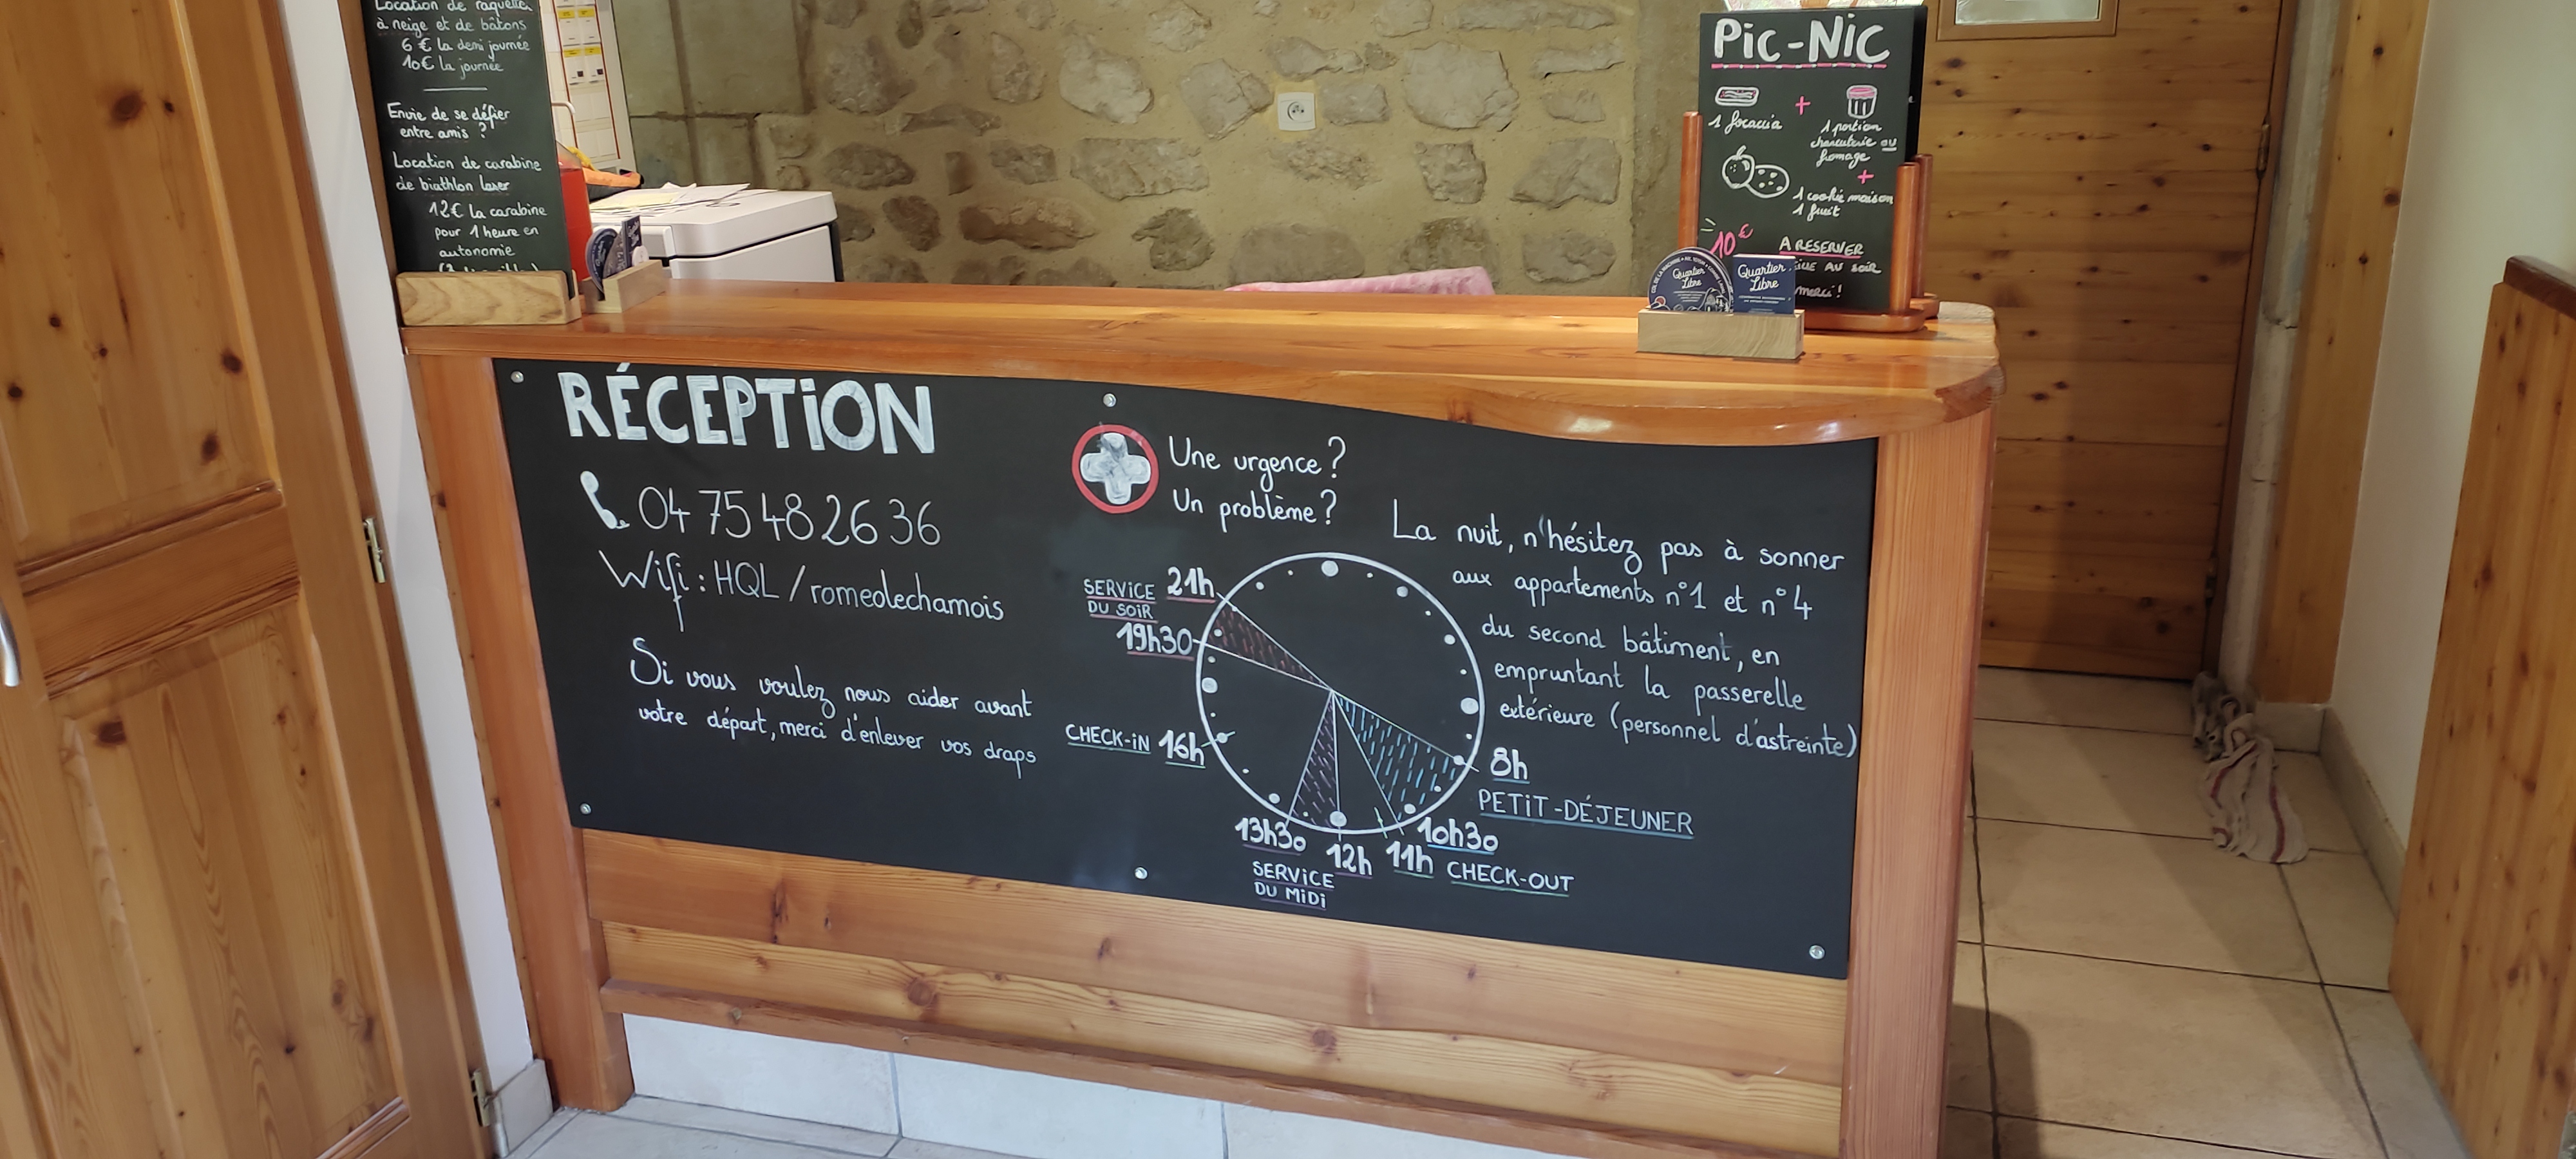 Location de raquettes
à neige et de bâtons
6 € la demi journée
10€ la journée
Envie de se défier
entre amis ?
Location de carabine
de biathlon laser
12€ la carabine
pour 1 heure en
autonomie
PiC-NiC
1 focaccia
+
1 portion
charcuterie ou
fromage
+
1 cookie maison
1 fruit
10€
A RESERVER
AU SOIR
merci !
Quartier
Libre
Quartier
Libre
RÉCEPTiON
04 75 48 26 36
Wifi : HQL / romeolechamois
Si vous voulez nous aider avant
votre départ, merci d'enlever vos draps
Une urgence ?
Un problème ?
La nuit, n'hésitez pas à sonner
aux appartements n°1 et n°4
du second bâtiment, en
empruntant la passerelle
extérieure (personnel d'astreinte)
SERVICE
DU SOiR
21h
19h30
CHECK-iN 16h
8h
PETiT-DÉJEUNER
10h30
11h CHECK-OUT
12h
13h30
SERViCE
DU MiDi